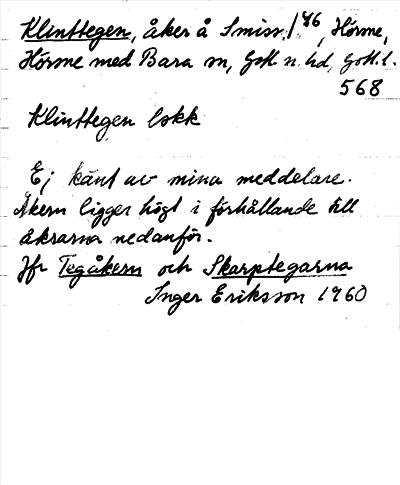 Klinttegen, åker å Smiss 1/46, Hörsne,
Hörsne med Bara sn, Gotl. n. hd, Gotl. l.
568
Klinttegen lokk
Ej känt av mina meddelare.
Åkern ligger högt i förhållande till
åkrarna nedanför.
Jfr Tegåkern och Skarptegarna
Inger Eriksson 1960